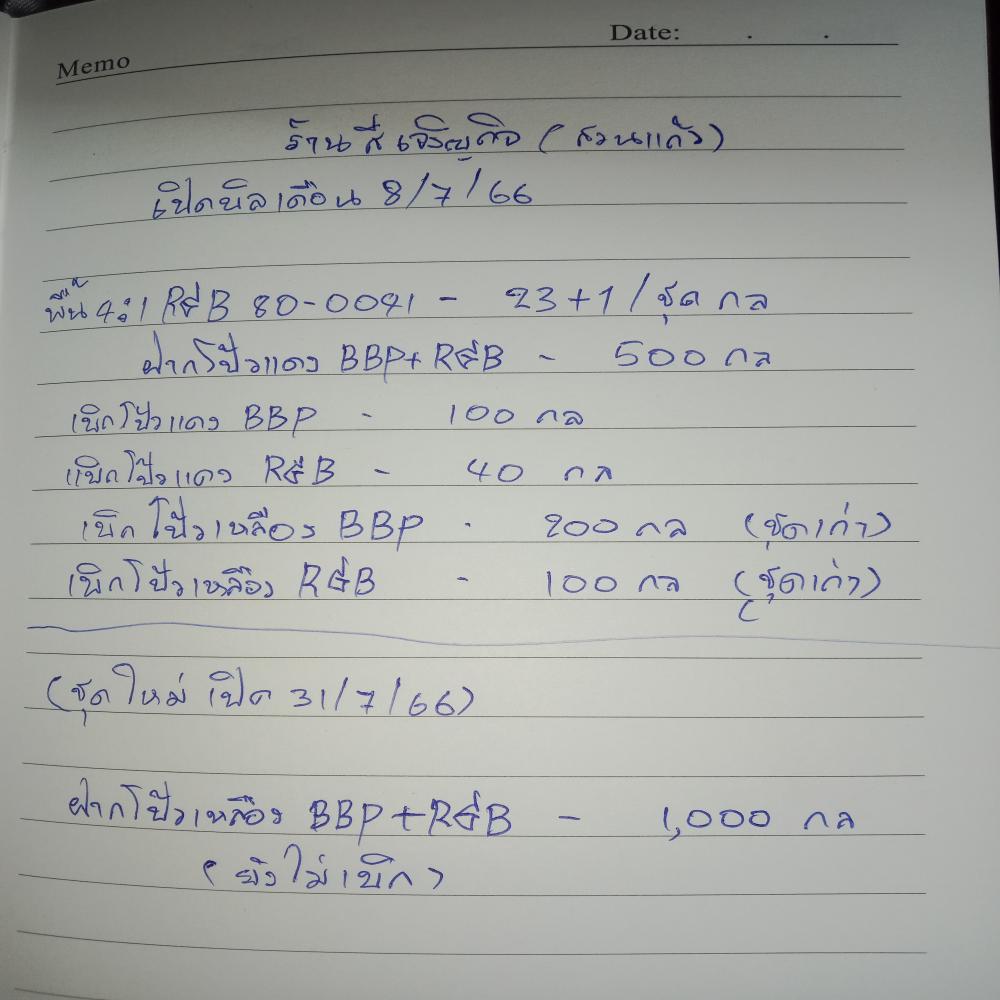 Memo
Date: . .
ร้าน สี เจริญกิจ (สวนแก้ว)
เปิดบิลเดือน 8/7/66
พื้น 4:1 R&B 80-0041 - 23+1/ชุด กล
ฝากโป๊วแดง BBP+R&B - 500 กล
เบิกโป๊วแดง BBP - 100 กล
เบิกโป๊วแดง R&B - 40 กล
เบิกโป๊วเหลือง BBP - 200 กล (ชุดเก่า)
เบิกโป๊วเหลือง R&B - 100 กล (ชุดเก่า)
(ชุดใหม่ เปิด 31/7/66)
ฝากโป๊วเหลือง BBP+R&B - 1,000 กล
(ยังไม่เบิก)